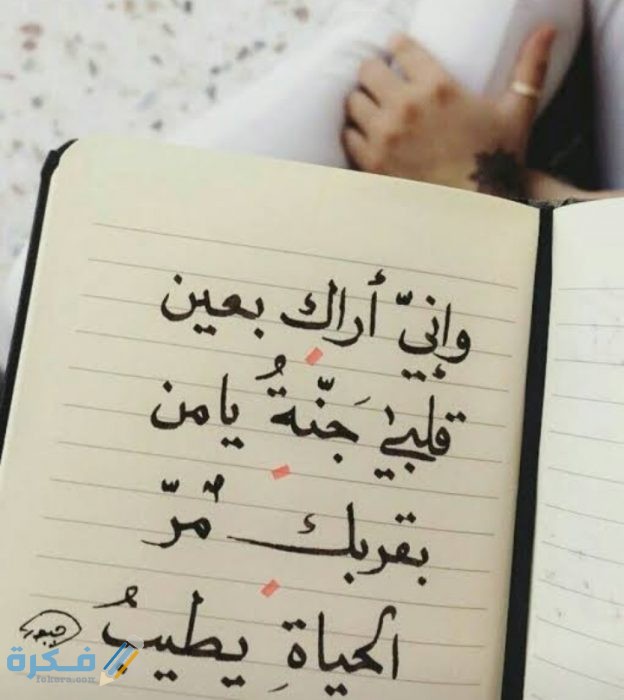 وإنيّ أراك بعين
قلبي جَنّةُ يامن
بقربك مُرّ
الحياةِ يطيبُ
فكرة
fekera.com